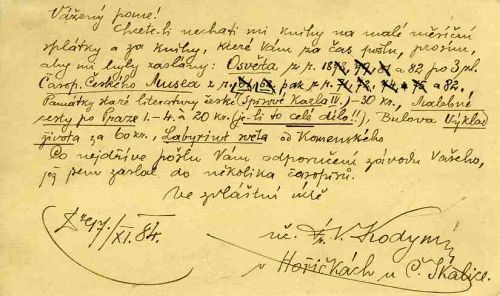 Vážený pane!
Chcete-li nechati mi knihy na malé měsíční
splátky a za knihy, které Vám za čas pošlu, prosím,
aby mi byly zaslány: Osvěta z r. a 82 po 3 zl.
Časop. Českého Musea z r. pak z r. a 82.
Památky staré literatury české (Spisové Karla IV.) - 30 kr., Malebné
cesty po Praze 1.-4. à 20 kr. (je-li to celé dílo!!), Bulova Výklad
života za 60 kr., Labyrint světa od Komenského
Co nejdříve pošlu Vám odporučení závodu Vašeho,
jež jsem zaslal do několika časopisů.
Ve zvláštní úctě
XI. 84.
uč. Fr. V. Kodym
v Hořičkách u Č. Skalice.